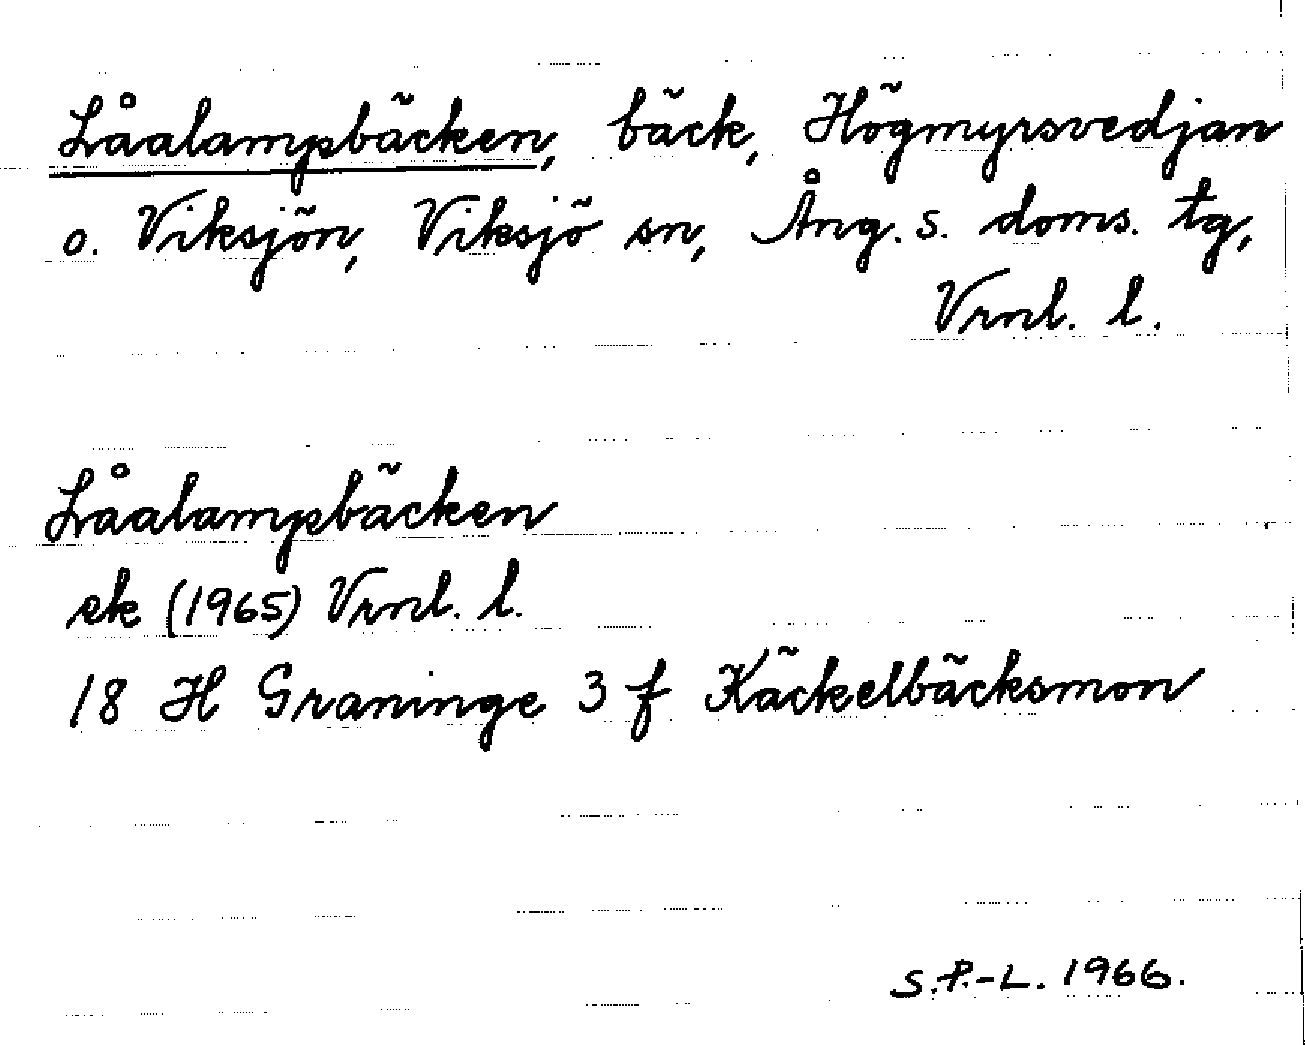 Låalampbäcken, bäck, Högmyrsvedjan
o. Viksjön, Viksjö sn, Ång. s. doms. tg,
Vrnl. l.
Låalampbäcken
ek (1965) Vrnl. l.
18 H Graninge 3 f Käckelbäcksmon
S.P.-L. 1966.